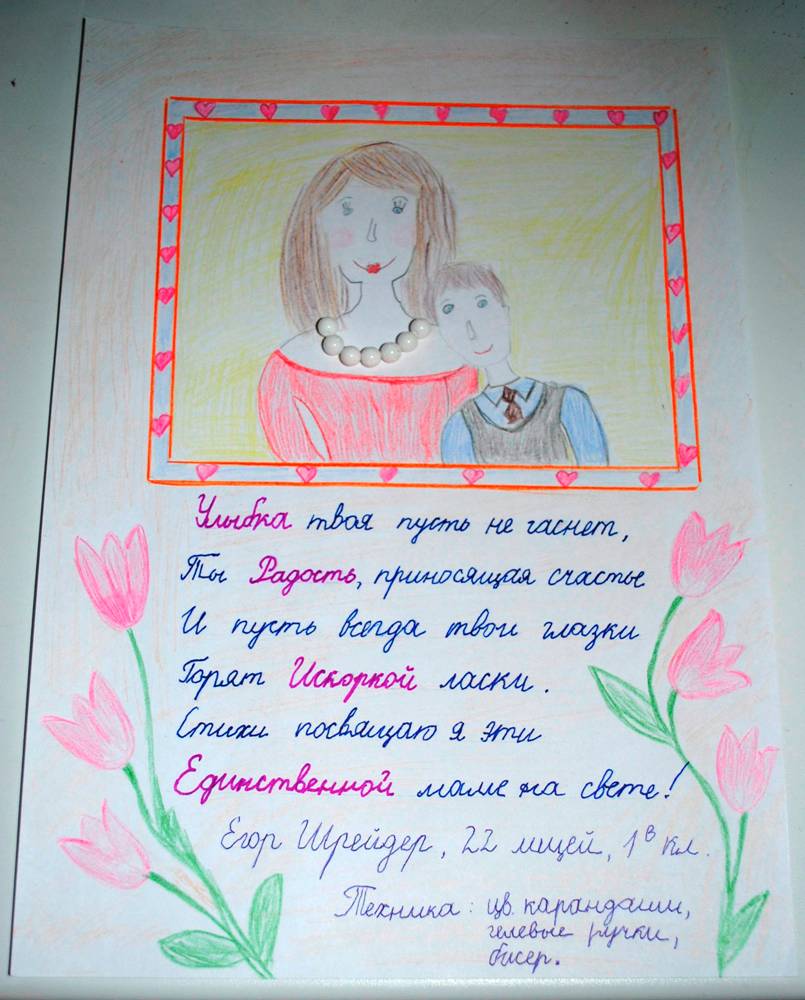 Улыбка твоя пусть не гаснет,
Ты Радость, приносящая счастье
И пусть всегда твои глазки
Горят Искоркой ласки.
Стихи посвящаю я эти
Единственной маме на свете!
Егор Шрейдер, 22 лицей, 1 В кл.
Техника: цв. карандаши,
гелевые ручки,
бисер.